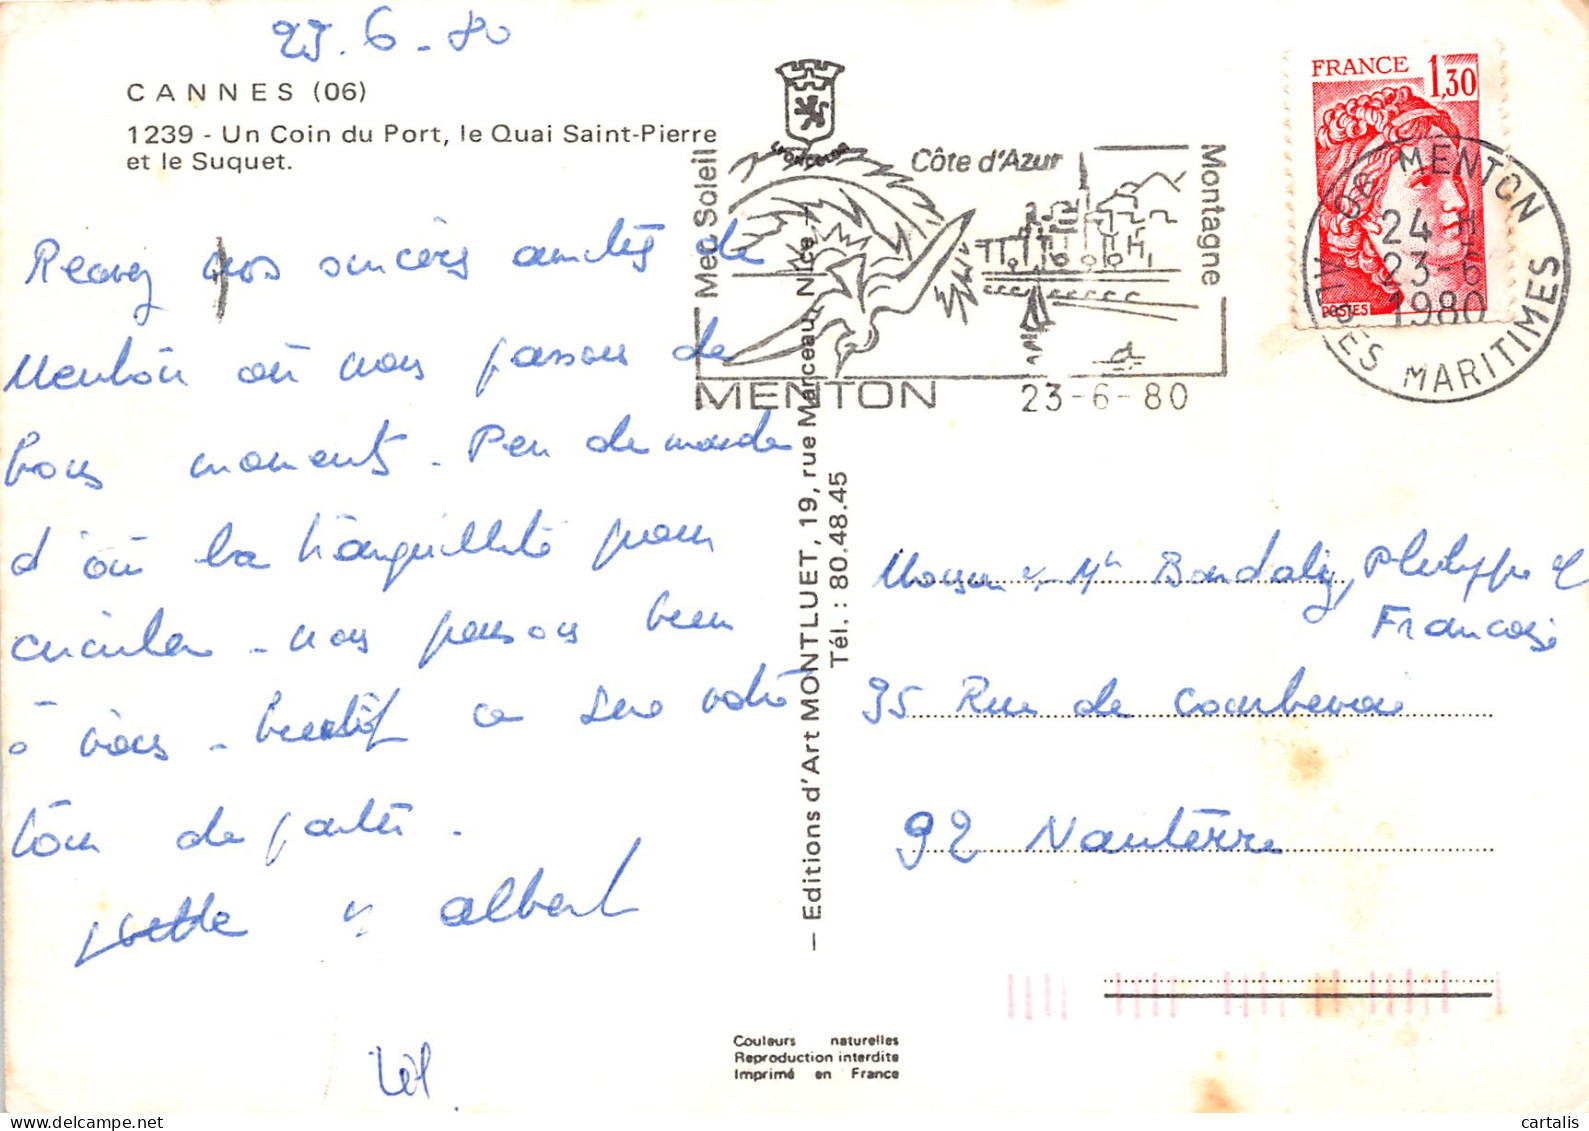 23.6-80
CANNES (06)
1239 - Un Coin du Port, le Quai Saint-Pierre
et le Suquet.
Recevez nos sincères amitiés de
Menton où nous passons de
bons moments. Peu de monde
d'où la tranquillité pour
circuler. nous pensons bien
à vous. bientôt ce sera votre
tour de partir.
et albert
Mer Soleil
Côte d'Azur
Montagne
MENTON
23-6-80
FRANCE 1,30
POSTES
06 MENTON
24 H
23-6
1980
ALPES MARITIMES
— Editions d'Art MONTLUET, 19, rue Marceau, Nice —
Tél. : 80.48.45
Philippe et
Francoise
95 Rue de Courbevoie
92 Nanterre
Couleurs naturelles
Reproduction interdite
Imprimé en France
cartalis